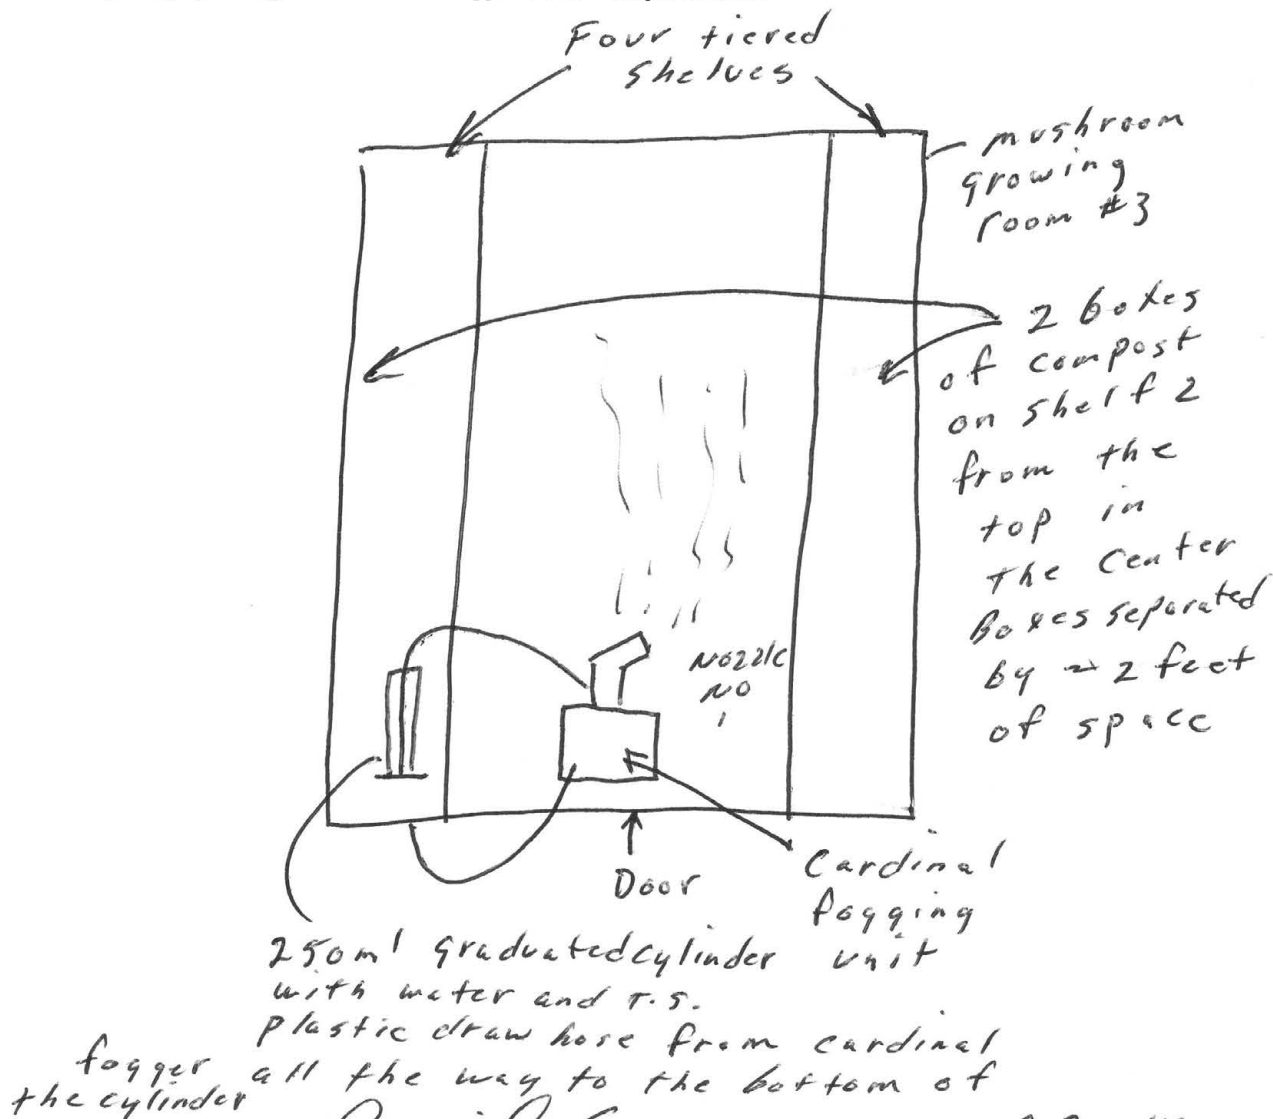 Four tiered
shelves
mushroom
growing
room #3
2 boxes
of compost
on shelf 2
from the
top in
the center
Boxes separated
by ~ 2 feet
of space
Nozzle
NO
1
Door
Cardinal
fogging
unit
250ml graduated cylinder
with water and T.S.
plastic draw hose from cardinal
fogger all the way to the bottom of
the cylinder